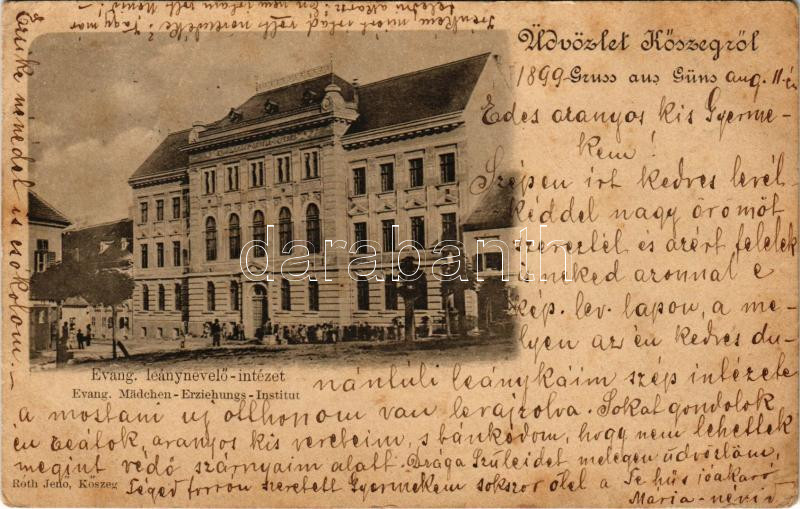 Üdvözlet Kőszegről
1899 Gruss aus Güns aug. 11-én
Édes aranyos kis Gyerme-
kem!
Szépen irt kedves levél-
kéddel nagy örömöt
szereztél, és azért felelek
is neked azonnal e
kép. lev. lapon, a me-
lyen az én kedves du-
nántúli leánykáim szép intézete
a mostani uj otthonom van lerajzolva. Sokat gondolok
én reátok, aranyos kis vereb​eim, s bánkódom, hogy nem lehettek
megint védő szárnyaim alatt. Drága Szüleidet melegen üdvözlöm,
Téged forrón szeretett Gyermekem sokszor ölel a Te hűs jóakaró
Mária-nénid
Evang. leánynevelő-intézet
Evang. Mädchen-Erziehungs-Institut
Roth Jenő, Kőszeg
nenédet is csókolom.
darabanth